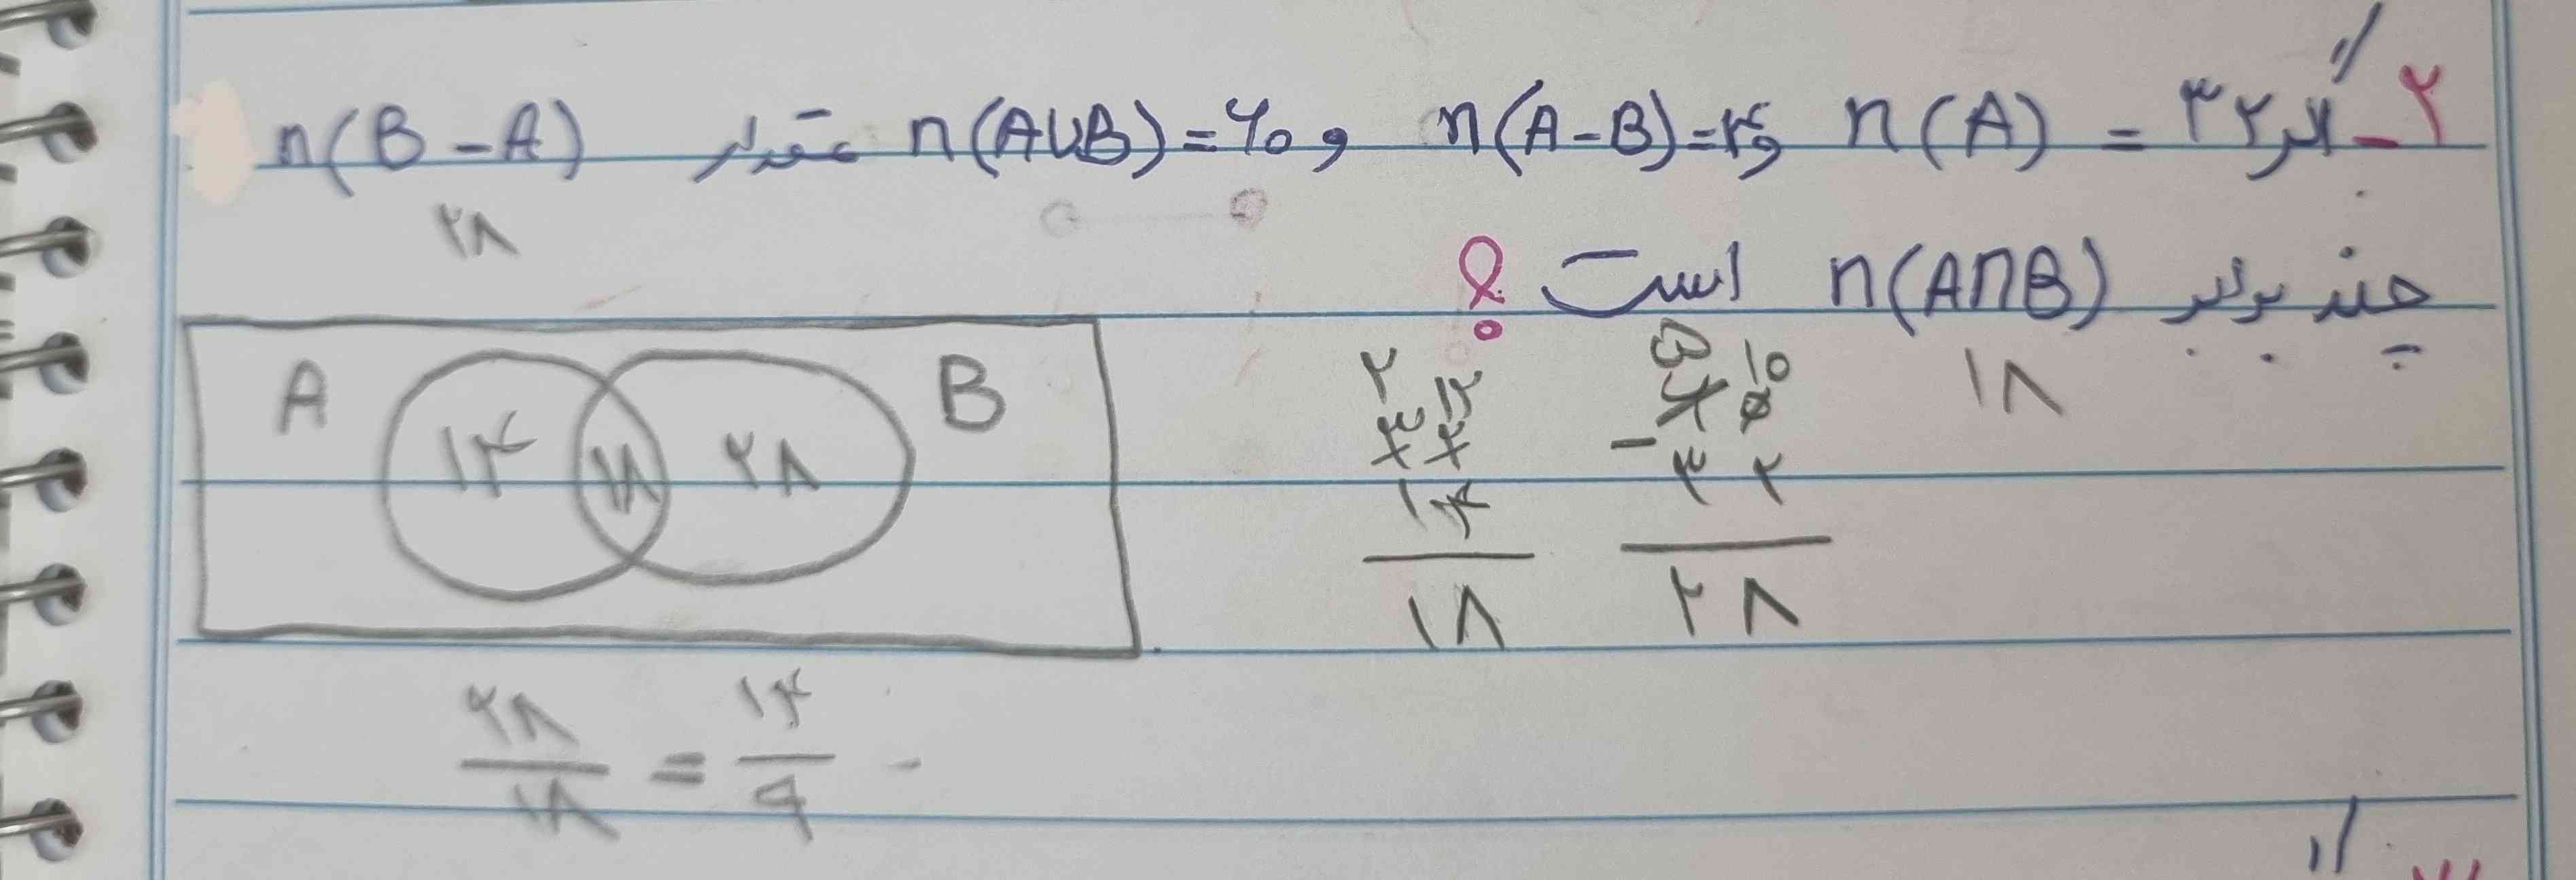 ۲_ اگر n(A) = ۳۲ و n(A-B)=۱۴ و n(A∪B)=۶۰ مقدار n(B-A)
۲۸
چند برابر n(A∩B) است ؟
۱۸
A ۱۴ ۱۸ ۲۸ B
۲ ۱۲
۳ ۲
۱۴
۱۸
۵ ۱۰
۶ ۰
- ۳ ۲
۲ ۸
۲۸/۱۸ = ۱۴/۹